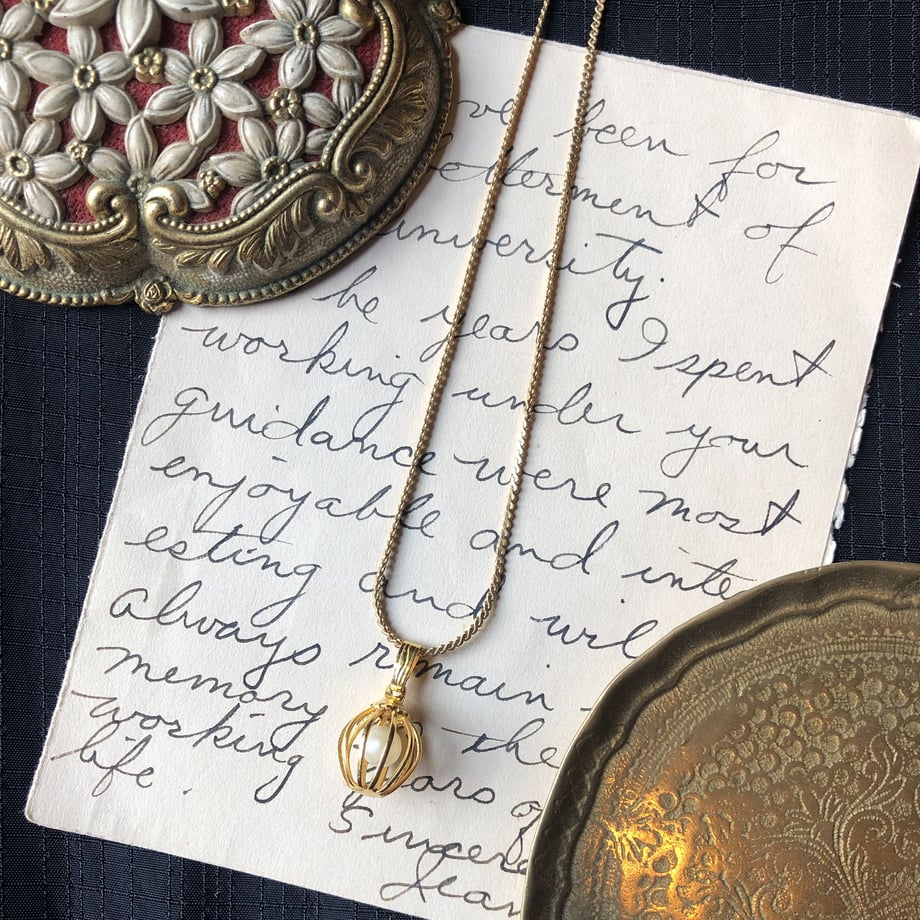 ve been for
etterment of
university.
he years I spent
working under your
guidance were most
enjoyable and inte
esting and wil
always remain
memory the
working years of
life.
Sincere
Jean